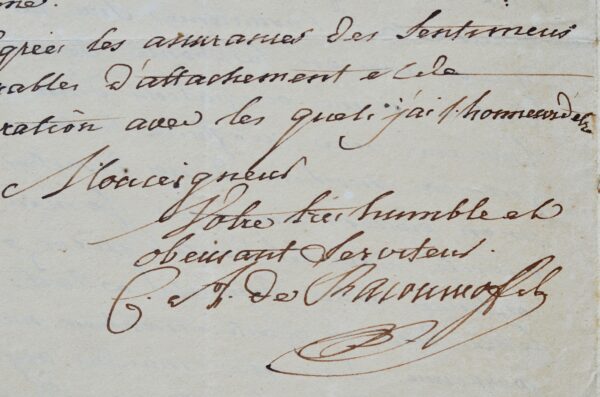 agréer les assurances des sentimens
rables d'attachement et de
ration avec les quels j'ai l'honneur d'etre
Monseigneur
Votre très humble et
obeissant Serviteur.
C. A. de Rasoumoffsky